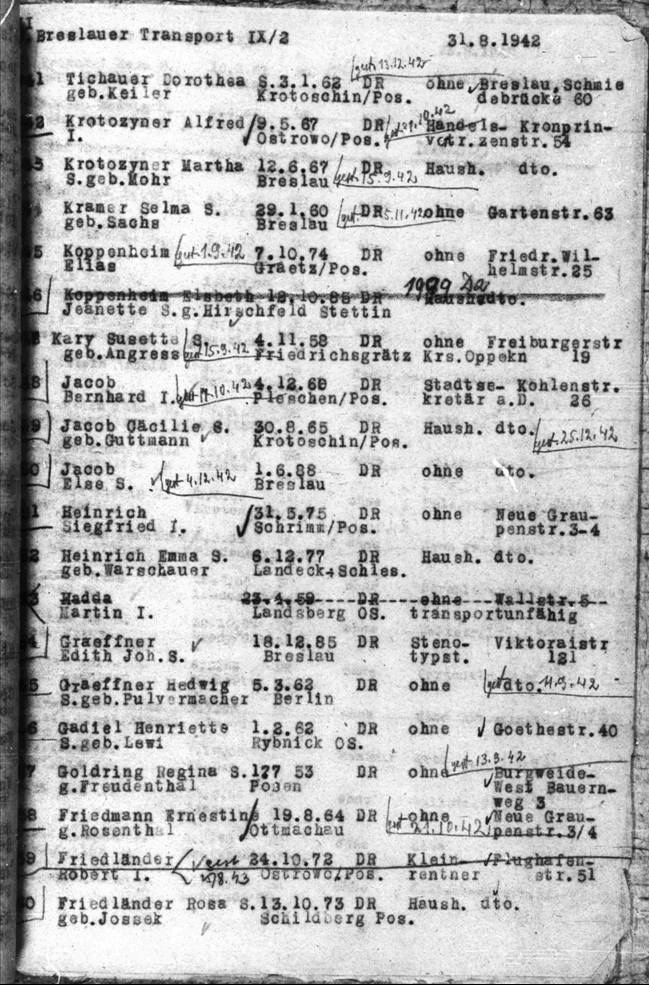 Breslauer Transport IX/2 31.8.1942
gest 13.12.42
1 Tichauer Dorothea S. 3.1.62 DR ohne Breslau, Schmie
geb.Keiler Krotoschin/Pos. debrücke 60
2 Krotozyner Alfred 9.5.67 DR gest 21.10.42 Handels- Kronprin-
I. Ostrowo/Pos. vetr. zenstr. 54
3 Krotozyner Martha 12.6.67 DR Haush. dto.
S.geb.Mohr Breslau gest 15.9.42
Kramer Selma S. 29.1.60 DR ohne Gartenstr.63
geb.Sachs Breslau gest. 5.11.42
5 Koppenheim gest. 1.9.42 7.10.74 DR ohne Friedr.Wil-
Elias Graetz/Pos. helmstr.25
6 Koppenheim Elsbeth 12.10.85 DR Haush dto.
Jeanette S.g.Hirschfeld Stettin
Kary Susette S. 4.11.58 DR ohne Freiburgerstr
geb.Angress gest 15.9.42 Friedrichsgrätz Krs.Oppekn 19
8 Jacob 4.12.60 DR Stadtse- Kohlenstr.
Bernhard I. gest 17.10.42 Pleschen/Pos. kretär a.D. 26
9 Jacob Cäcilie S. 30.8.65 DR Haush. dto.
geb.Guttmann Krotoschin/Pos. gest. 25.12.42
0 Jacob 1.6.88 DR ohne dto.
Else S. gest 4.12.42 Breslau
1 Heinrich 31.5.75 DR ohne Neue Grau-
Siegfried I. Schrimm/Pos. penstr.3-4
2 Heinrich Emma S. 6.12.77 DR Haush. dto.
geb.Warschauer Landeck,Schles.
3 Hadda 23.4.59 DR ohne Wallstr.5
Martin I. Landsberg OS. transportunfähig
4 Graeffner 18.12.85 DR Steno- Viktoraistr
Edith Joh.S. Breslau typst. 121
5 Graeffner Hedwig 5.3.62 DR ohne gest dto. 11.9.42
S.geb.Pulvermacher Berlin
6 Gadiel Henriette 1.2.62 DR ohne Goethestr.40
S.geb.Lewi Rybnick OS.
gest 13.9.42
7 Goldring Regina S. 177 53 DR ohne Burgweide-
g.Freudenthal Posen West Bauern-
weg 3
8 Friedmann Ernestine 19.8.64 DR ohne Neue Grau-
g.Rosenthal Ottmachau gest 21.10.42 penstr.3/4
9 Friedländer gest 24.10.72 DR Klein- Flughafen-
Robert I. Ostrowo/Pos. rentner str.51
0 Friedländer Rosa S. 13.10.73 DR Haush. dto.
geb.Jossek Schildberg Pos.